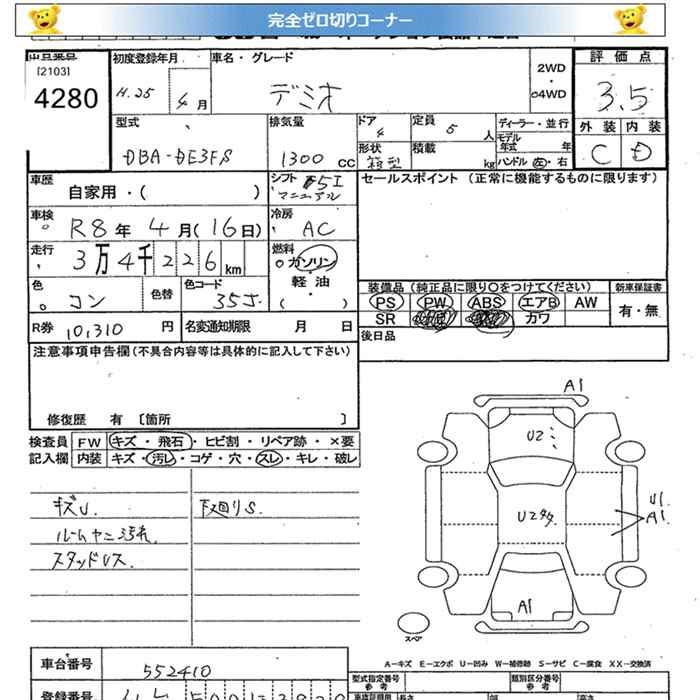 完全ゼロ切りコーナー
出品番号 初度登録年月 車名・グレード 2WD・○4WD 評価点
[2103]
4280 H.25 4月 デミオ 3.5
型式 排気量 ドア 4 定員 5人 ディーラー・並行 外装 内装
DBA-DE3FS 1300CC 形状 箱型 積載 kg モデル年式 年 C D
ハンドル 左・右
車歴 自家用・( ) シフト 5I マニュアル セールスポイント (正常に機能するものに限ります)
車検 R8年4月(16日) 冷房 AC
走行 3万4千226km 燃料 ガソリン・軽油・( )
色 コン 色替 色コード 35J 装備品 (純正品に限り○をつけてください) 新車保証書
PS PW ABS エアB AW 有・無
R券 10,310円 名変通知期限 月 日 SR カワ
後日品
注意事項申告欄(不具合内容等は具体的に記入して下さい)
修復歴 有 〔箇所 〕
検査員 FW キズ・飛石・ヒビ割・リペア跡・×要
記入欄 内装 キズ・汚レ・コゲ・穴・スレ・キレ・破レ
キズU. 下廻りS.
ルームヤニ汚れ.
スタッドレス.
A1
U2
U2タタ
U1.
A1
A1
スペア
A-キズ E-エクボ U-凹み W-補修跡 S-サビ C-腐食 XX-交換済
車台番号 552410 型式指定番号 参考 類別区分番号 参考
登録番号 長さ 幅 高さ